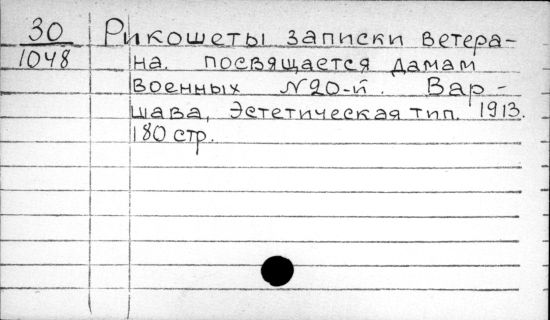 30
1048
Рикошеты записки ветера-
на. посвящается дамам
военных №20-й. Вар-
шава, Эстетическая тип. 1913.
180 стр.